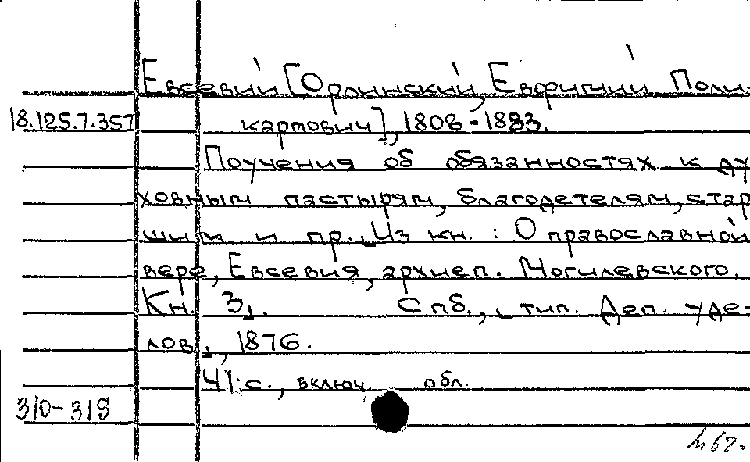 Евсевий [Орлинский, Евфигний Поли-
18.125.7.357 карпович], 1808-1883.
Поучения об обязанностях к ду
ховным пастырям, благодетелям, стар
шим и пр. Из кн.: О православной
вере, Евсевия, архиеп. Могилевского.
Кн. 3. Спб., тип. Деп. уде-
лов, 1876.
41 с., включ. обл.
310-31